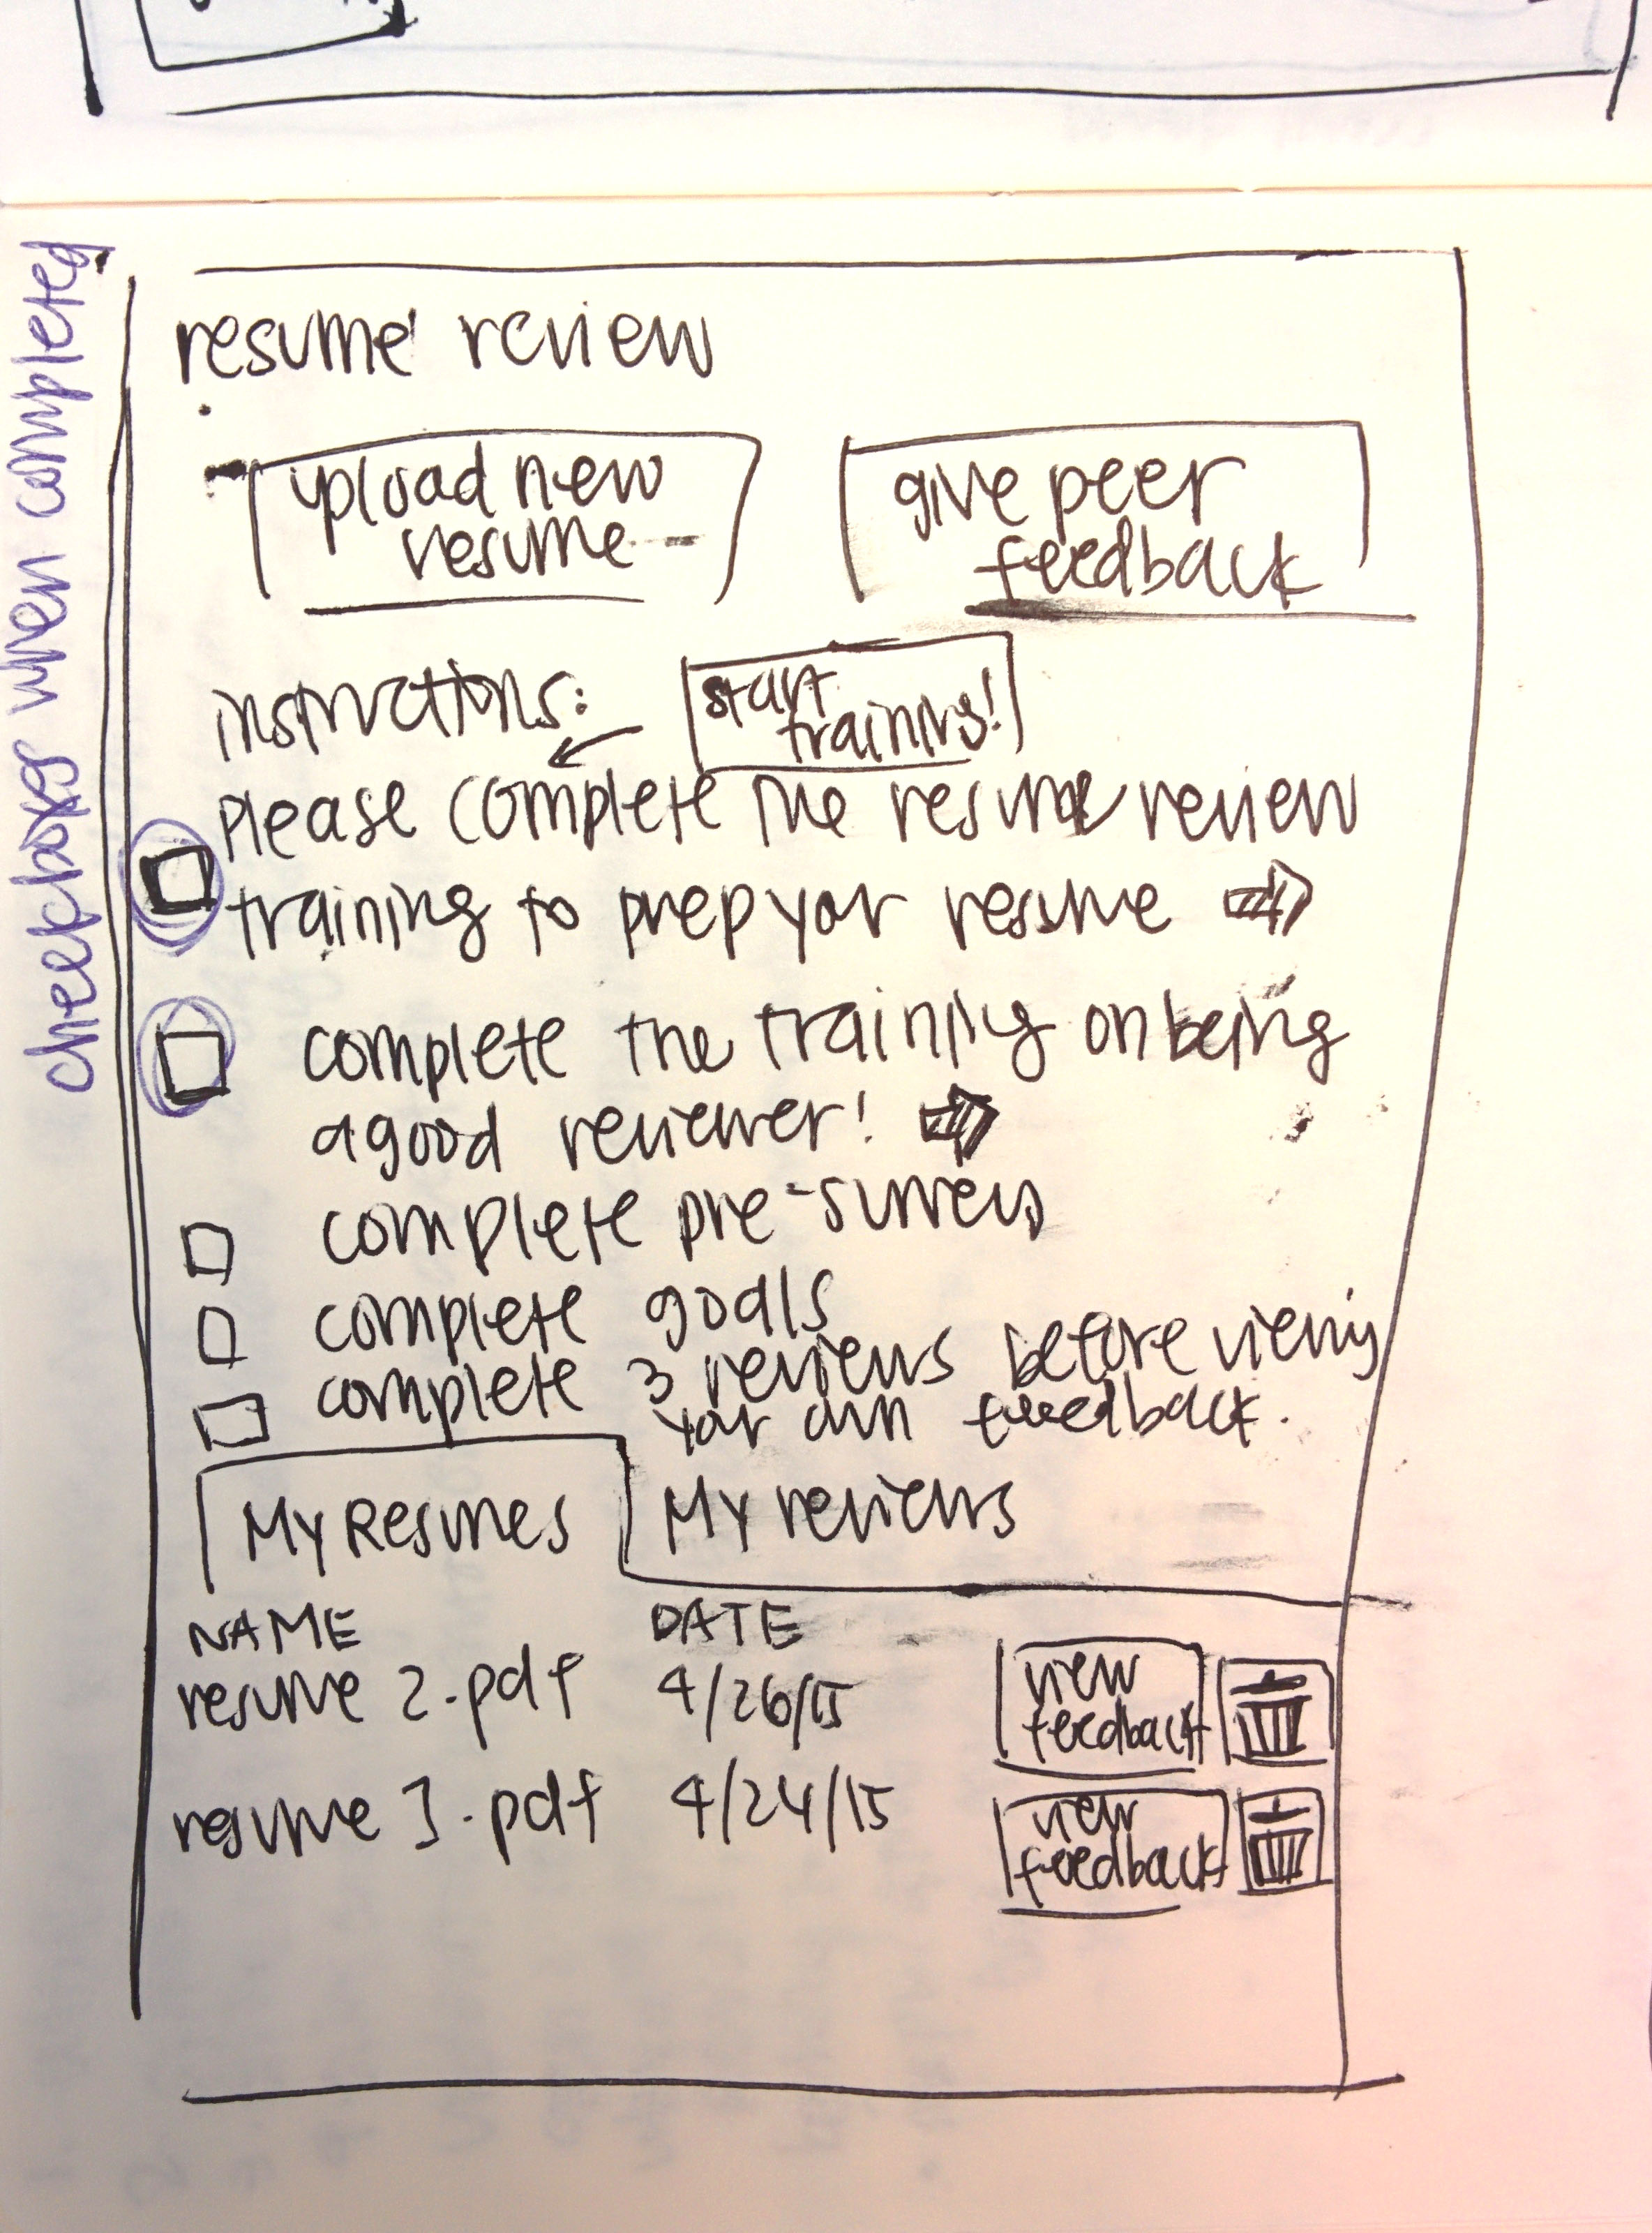 checkboxes when completed
resume review
upload new
resume
give peer
feedback
instructions:
start
training!
please complete the resume review
training to prep your resume
complete the training on being
a good reviewer!
complete pre-survey
complete goals
complete 3 reviews before viewing
your own feedback.
My Resumes
My reviews
NAME
DATE
resume 2.pdf
4/26/15
view
feedback
resume 1.pdf
4/24/15
view
feedback